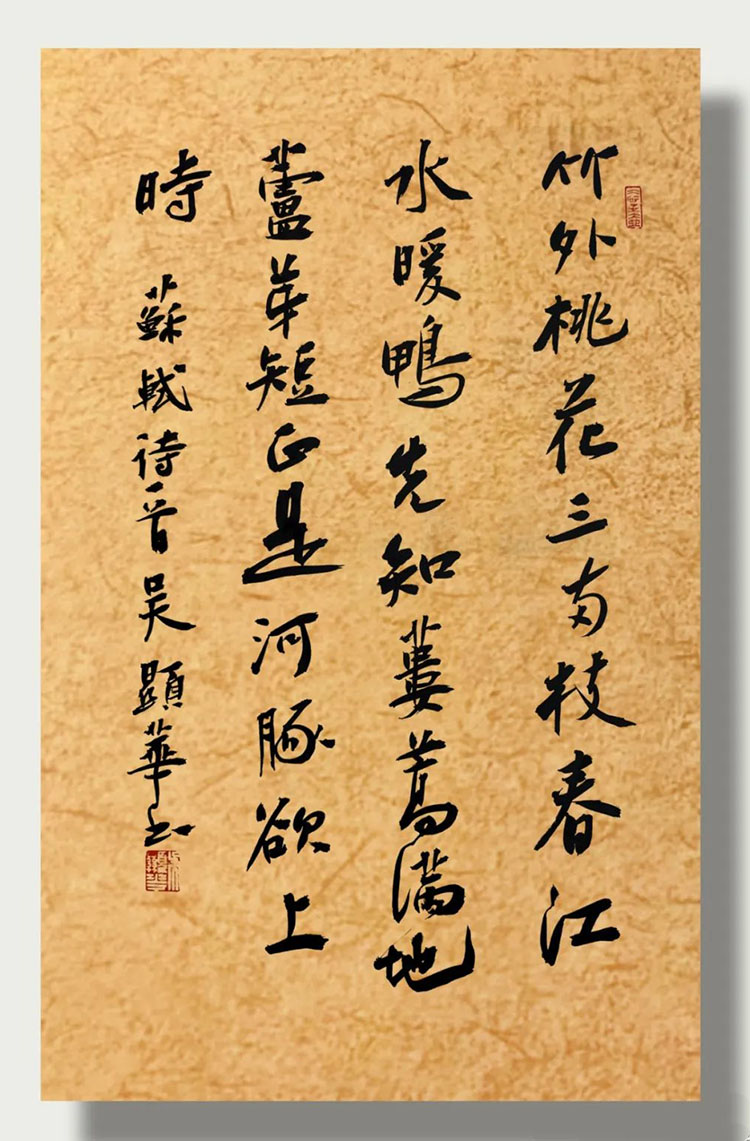 竹外桃花三两枝春江
水暖鴨先知蔞蒿满地
蘆芽短正是河豚欲上
時 蘇軾诗一首吴顯華书